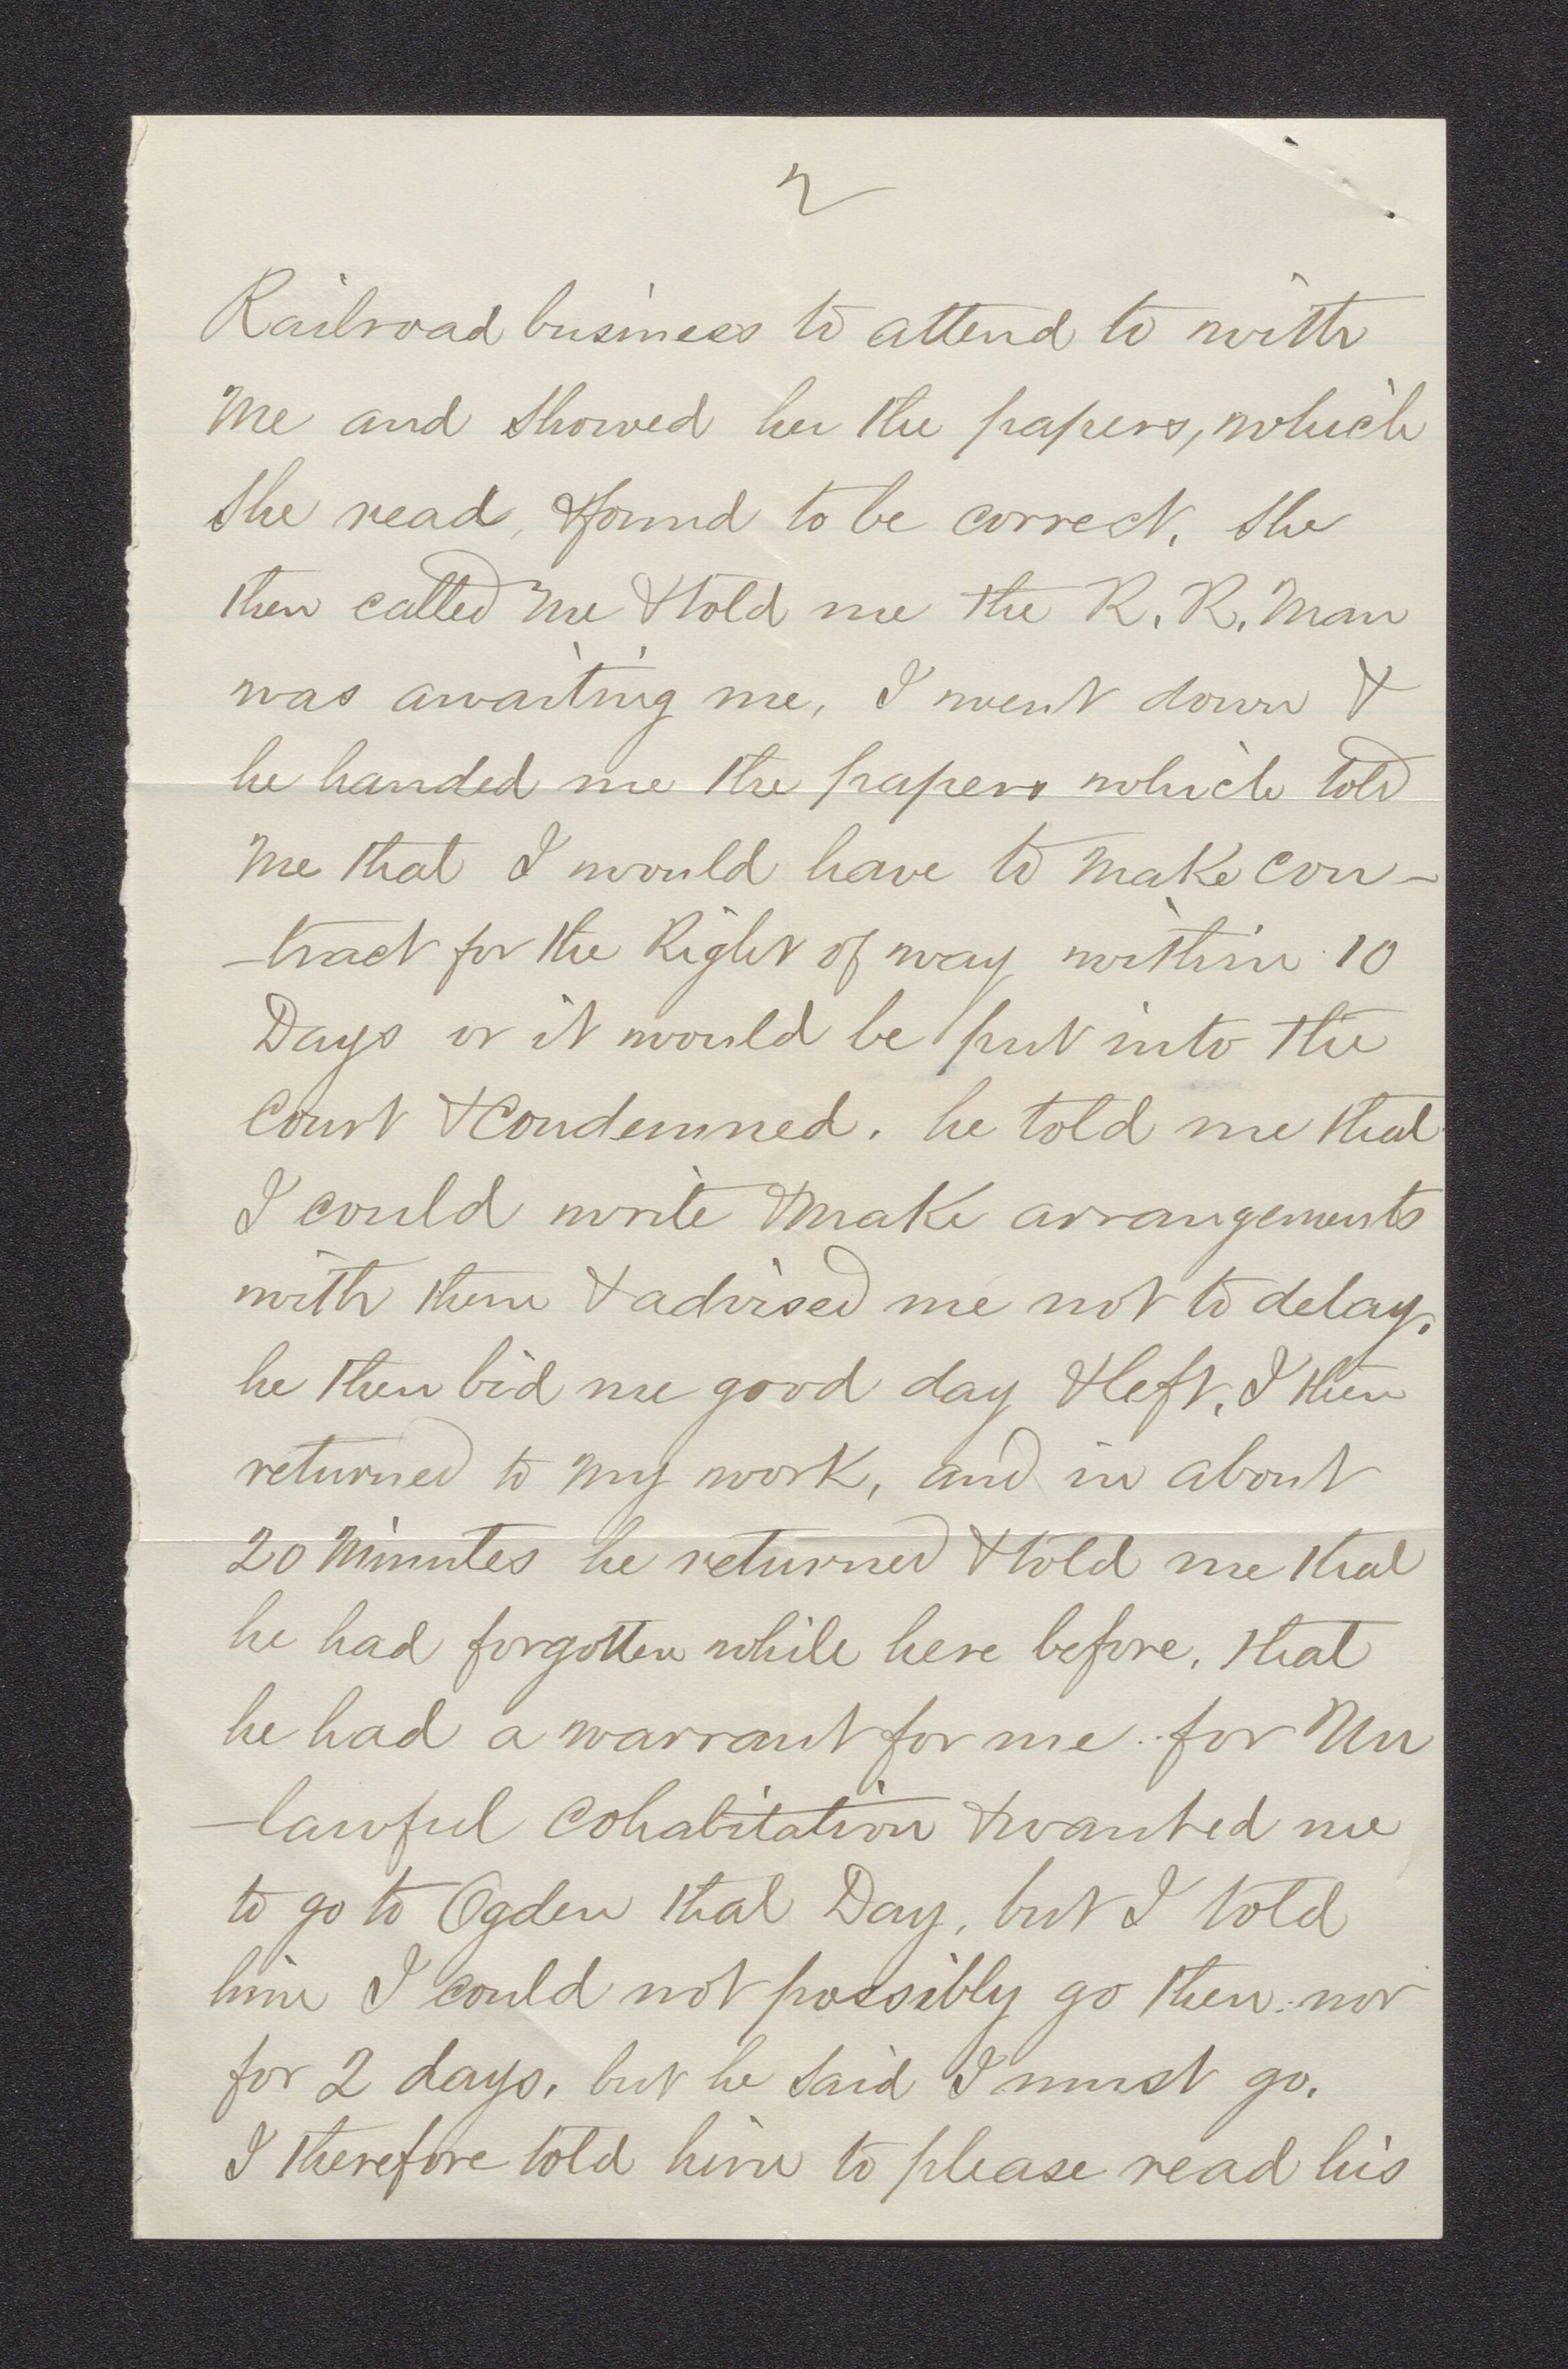 2
Railroad business to attend to with
Me and Showed her the papers, which
She read, & found to be correct, She
then called Me & told me the R. R. Man
was awaiting me, I went down &
he handed me the papers which told
Me that I would have to Make con-
-tract for the Right of way within 10
Days or it would be put into the
Court & Condemned. he told me that
I could write & Make arrangements
with them & advised me not to delay.
he then bid me good day & left, I then
returned to My work, and in about
20 Minutes he returned & told me that
he had forgotten while here before, that
he had a warrant for me for Un
-lawful Cohabitation & wanted me
to go to Ogden that Day, but I told
him I could not possibly go then nor
for 2 days, but he Said I must go.
I therefore told him to please read his